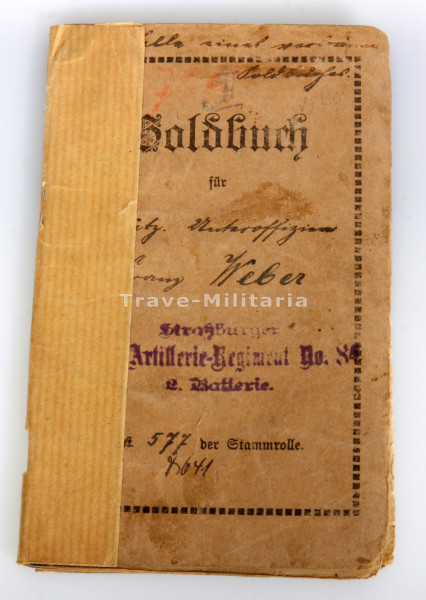 eines
Soldbuches.
Soldbuch
für
Unteroffizier
Weber
Trave-Militaria
Straßburger
Artillerie-Regiment No. 84
2. Batterie.
577 der Stammrolle.